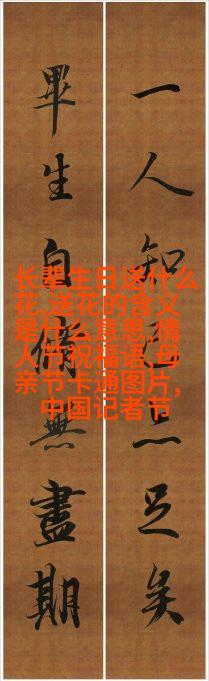 一人知己亦足矣
畢生自脩無盡期
长辈生日送什么
花,送花的含义
是什么意思,情
人节祝福语,母
亲节卡通图片,
中国记者节